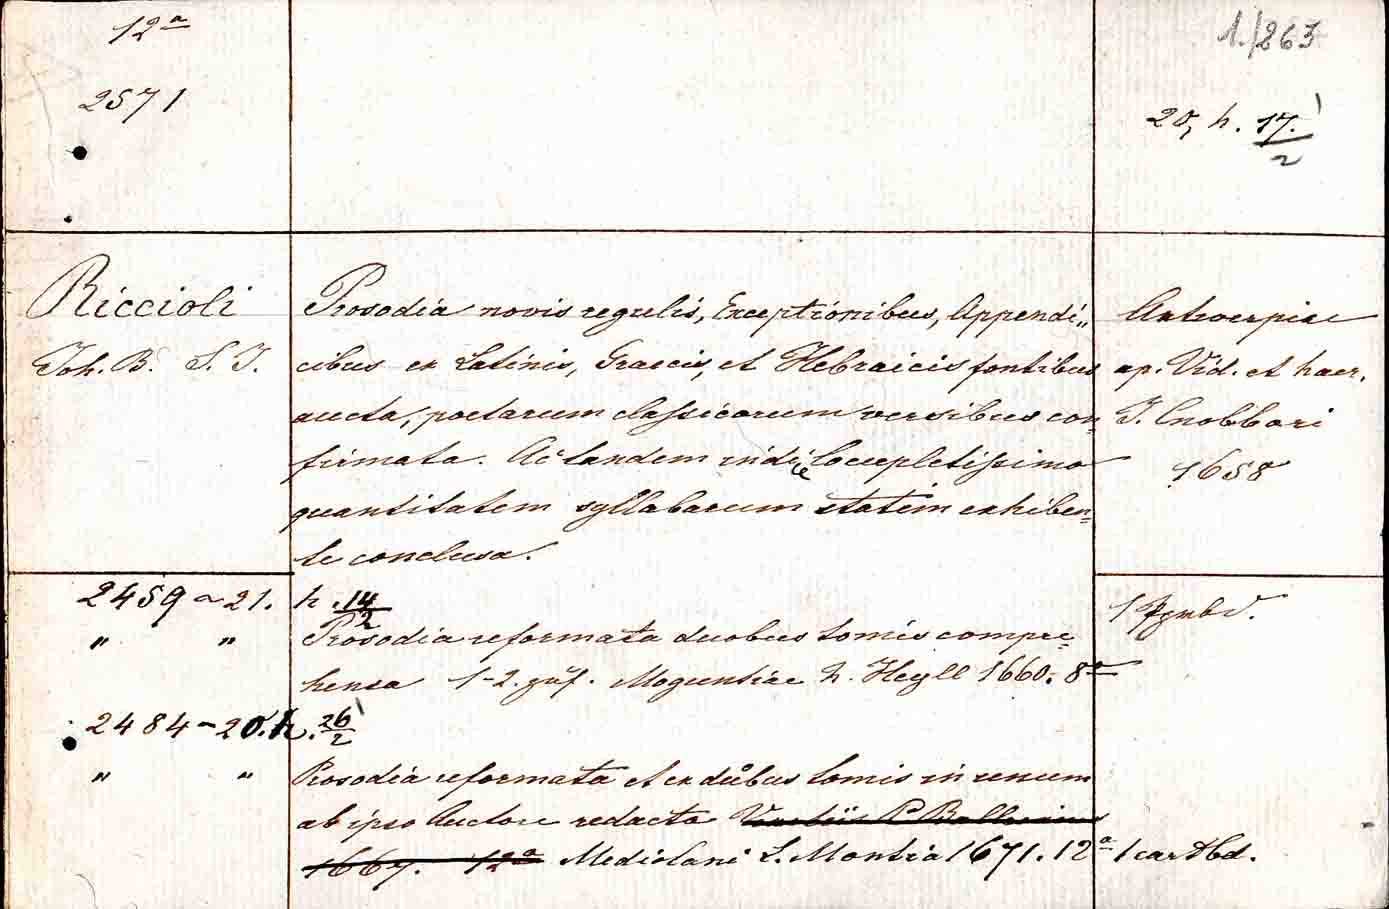 12a
2571
1./863
20, h. 17./2
Riccioli
Joh. B. S. J.
Prosodia novis regulis, Exceptionibus, Appendi„
cibus ex Latinis, Graecis, et Hebraicis fontibus
aucta, poetarum classicorum versibus con„
firmata. Ac tandem indice locupletissimo
quantitatem syllabarum statim exhiben„
te conclusa.
Antverpiae
ap. Vid. et haer.
J. Cnobbari
1658
2459 - 21. h. 14/2
„ „ Prosodia reformata duobus tomis compre„
hensa 1-2. Moguntiae N. Heyll 1660. 8a
2484 - 20. h. 26/2
„ „ Prosodia reformata et ex duobus tomis in unum
ab ipso Auctore redacta
1667. 12a Mediolani L. Montia 1671. 12a 1 cardbd.